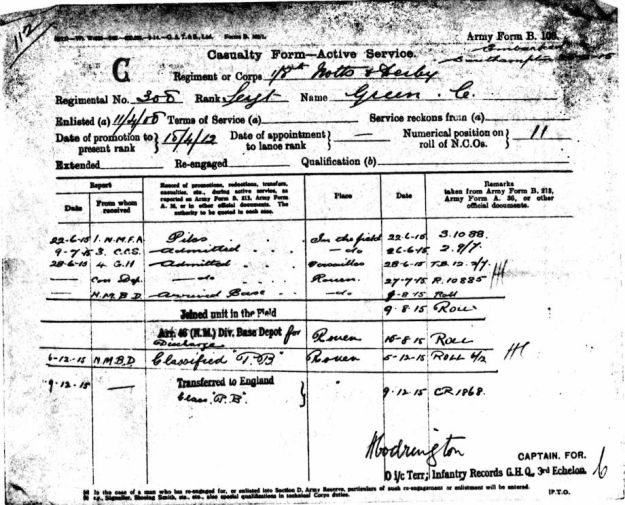 112
Army Form B. 103.
Casualty Form—Active Service.
Embarked
Southampton
C
Regiment or Corps 1/8th Notts & Derby
Regimental No. 308 Rank Sergt Name Green. C.
Enlisted (a) 11/4/08 Terms of Service (a) Service reckons from (a)
Date of promotion to present rank } 15/4/12 Date of appointment to lance rank } — Numerical position on roll of N.C.Os. } 11
Extended Re-engaged Qualification (b)
Report
Date From whom received
Record of promotions, reductions, transfers, casualties, etc., during active service, as reported on Army Form B. 213, Army Form A. 36, or in other official documents. The authority to be quoted in each case.
Place
Date
Remarks taken from Army Form B. 213, Army Form A. 36, or other official documents.
22-6-15 1. N.M.F.A Piles In the field 22-6-15 3.1088.
9-7-15 3. C.C.S. Admitted —do 26-6-15 2.9/7.
28-6-15 4. G.H Admitted Versailles 28-6-15 T.B. 12. 2/7.
— Con Dep. —do Rouen. 27-7-15 R. 10885
— N.M.B.D Arrived Base —do -8-15 Roll
Joined unit in the Field 9.8.15 Roll
Arr. 46 (N.M.) Div. Base Depot for Discharge Rouen 15-8-15 Roll
6-12-15 N.M.B.D Classified "T.B" Rouen 5-12-15 ROLL 6/12
9.12.15 — Transferred to England " 9.12.15 CR 1868.
Class "T.B" }
CAPTAIN. FOR.
O i/c Terr; Infantry Records G.H.Q. 3rd Echelon. 6
(a) In the case of a man who has re-engaged for, or enlisted into Section D, Army Reserve, particulars of such re-engagement or enlistment will be entered.
(b) e.g., Signaller, Shoeing Smith, etc., etc., also special qualifications in technical Corps duties. [P.T.O.